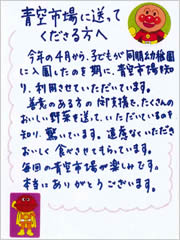 青空市場に送って
くださる方へ
今年の4月から、子どもが同朋幼稚園
に入園したのを期に、青空市場を知
り、利用させていただいています。
善意のある方の御実積を、たくさんの
おいしい野菜を送っていただいているのを
知り、驚いています。遠慮なくいただき
おいしく食べさせてもらっています。
毎回の青空市場が楽しみです。
本当にありがとうございます。